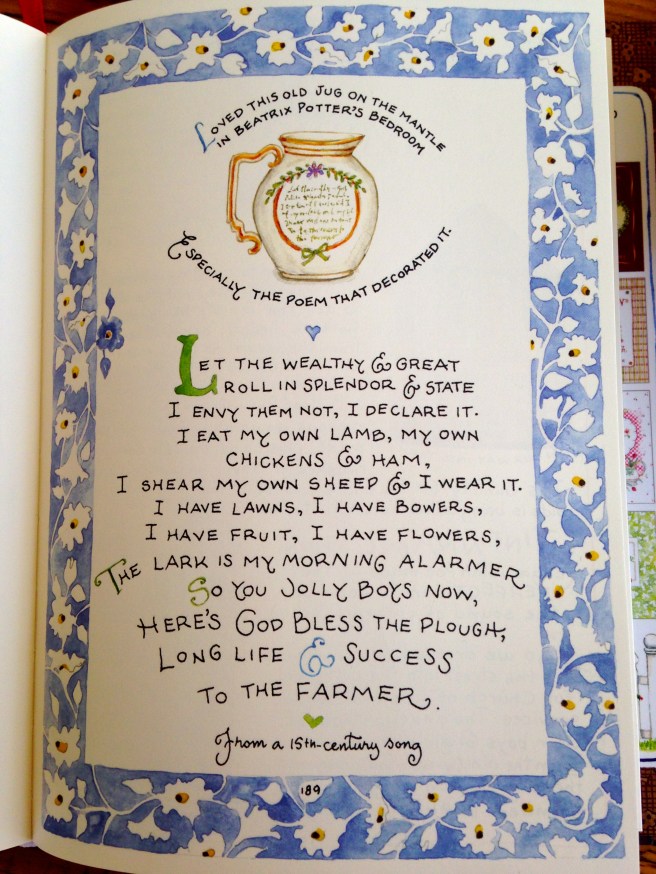 Loved this old jug on the mantle
in Beatrix Potter's bedroom
Especially the poem that decorated it.
Let the wealthy & great
roll in splendor & state
I envy them not, I declare it.
I eat my own lamb, my own
chickens & ham,
I shear my own sheep & I wear it.
I have lawns, I have bowers,
I have fruit, I have flowers,
The lark is my morning alarmer
So you jolly boys now,
Here's God bless the plough,
Long life & success
to the farmer.
From a 15th-century song
189